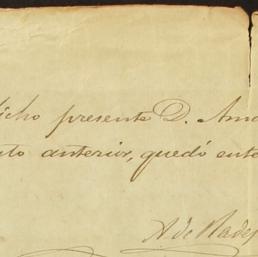 icho presente D. Ama
to anterior, quedó ente
A de Rade